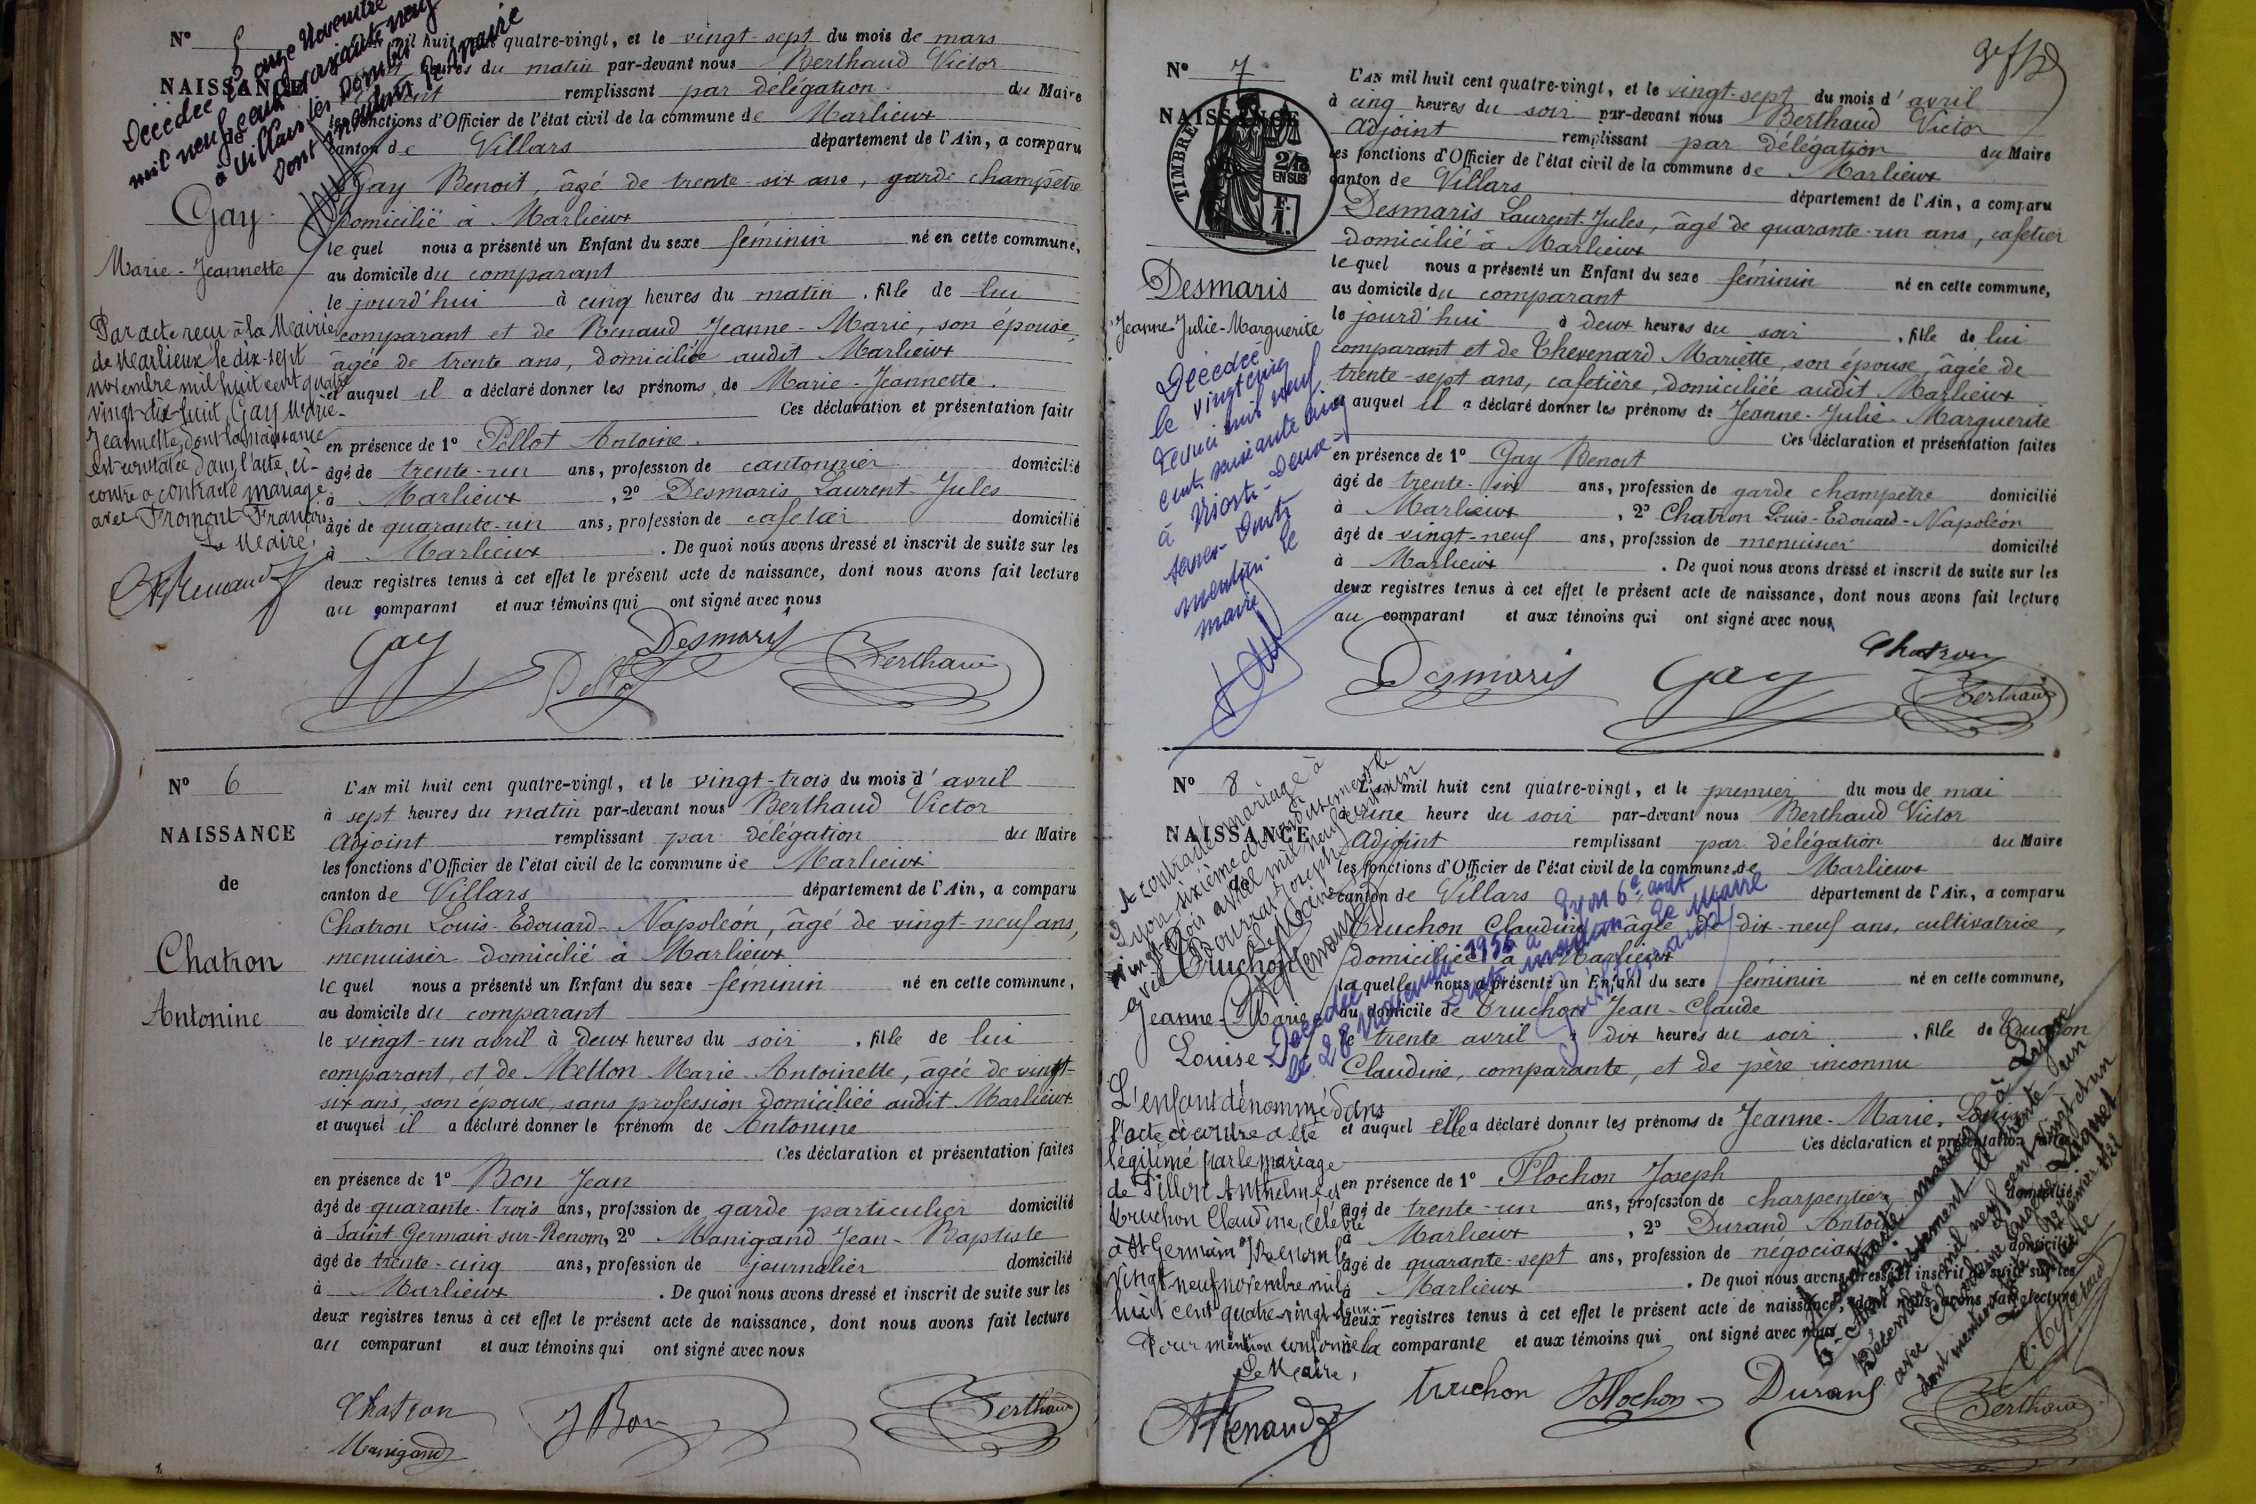 N° 5
NAISSANCE
de
Décédée le onze Novembre
mil neuf cent soixante neuf
à Villars les Dombes
dont mention Le Maire
Gay
Marie-Jeannette
Par acte reçu à la Mairie
de Marlieux le dix-sept
novembre mil huit cent quatre
vingt-dix-huit, Gay Marie-
Jeannette, dont la naissance
est constatée dans l'acte ci-
contre a contracté mariage
avec Froment François.
Le Maire,
ARenaud
mil huit cent quatre-vingt, et le vingt-sept du mois de mars
heures du matin par-devant nous Berthaud Victor
Adjoint remplissant par délégation du Maire
les fonctions d'Officier de l'état civil de la commune de Marlieux
canton de Villars département de l'Ain, a comparu
Gay Benoit, âgé de trente-six ans, garde champêtre
domicilié à Marlieux
lequel nous a présenté un Enfant du sexe féminin né en cette commune,
au domicile du comparant
le jourd'hui à cinq heures du matin, fille de lui
comparant et de Renaud Jeanne-Marie, son épouse,
âgée de trente ans, domiciliée audit Marlieux
et auquel il a déclaré donner les prénoms de Marie-Jeannette.
Ces déclaration et présentation faites
en présence de 1° Pellot Antoine.
âgé de trente-un ans, profession de cantonnier domicilié
à Marlieux, 2° Desmaris Laurent-Jules
âgé de quarante-un ans, profession de cafetier domicilié
à Marlieux. De quoi nous avons dressé et inscrit de suite sur les
deux registres tenus à cet effet le présent acte de naissance, dont nous avons fait lecture
au comparant et aux témoins qui ont signé avec nous
Gay Desmaris Berthaud
N° 6
NAISSANCE
de
Chatron
Antonine
L'AN mil huit cent quatre-vingt, et le vingt-trois du mois d'avril
à sept heures du matin par-devant nous Berthaud Victor
Adjoint remplissant par délégation du Maire
les fonctions d'Officier de l'état civil de la commune de Marlieux
canton de Villars département de l'Ain, a comparu
Chatron Louis-Edouard-Napoléon, âgé de vingt-neuf ans,
menuisier domicilié à Marlieux
lequel nous a présenté un Enfant du sexe féminin né en cette commune,
au domicile du comparant
le vingt-un avril à deux heures du soir, fille de lui
comparant, et de Metton Marie-Antoinette, âgée de vingt-
six ans, son épouse, sans profession domiciliée audit Marlieux
et auquel il a déclaré donner le prénom de Antonine
Ces déclaration et présentation faites
en présence de 1° Bon Jean
âgé de quarante-trois ans, profession de garde particulier domicilié
à Saint Germain-sur-Renom, 2° Manigand Jean-Baptiste
âgé de trente-cinq ans, profession de journalier domicilié
à Marlieux. De quoi nous avons dressé et inscrit de suite sur les
deux registres tenus à cet effet le présent acte de naissance, dont nous avons fait lecture
au comparant et aux témoins qui ont signé avec nous
Chatron J Bon Berthaud
Manigand
N° 7
NAISSANCE
TIMBRE
2/10
EN SUS
F.
1.
Desmaris
Jeanne-Julie-Marguerite
Décédée
le vingt cinq
mil neuf
cent soixante cinq
à Niort-Deux-
Sèvres - Dont
mention - le
maire
L'AN mil huit cent quatre-vingt, et le vingt-sept du mois d'avril
à cinq heures du soir par-devant nous Berthaud Victor
Adjoint remplissant par délégation du Maire
les fonctions d'Officier de l'état civil de la commune de Marlieux
canton de Villars département de l'Ain, a comparu
Desmaris Laurent-Jules, âgé de quarante-un ans, cafetier
domicilié à Marlieux
lequel nous a présenté un Enfant du sexe féminin né en cette commune,
au domicile du comparant
le jourd'hui à deux heures du soir, fille de lui
comparant et de Thevenard Mariette, son épouse, âgée de
trente-sept ans, cafetière, domiciliée audit Marlieux
et auquel il a déclaré donner les prénoms de Jeanne-Julie-Marguerite
Ces déclaration et présentation faites
en présence de 1° Gay Benoit
âgé de trente-six ans, profession de garde champêtre domicilié
à Marlieux, 2° Chatron Louis-Edouard-Napoléon
âgé de vingt-neuf ans, profession de menuisier domicilié
à Marlieux. De quoi nous avons dressé et inscrit de suite sur les
deux registres tenus à cet effet le présent acte de naissance, dont nous avons fait lecture
au comparant et aux témoins qui ont signé avec nous
Chatron
Desmaris Gay Berthaud
N° 8
NAISSANCE
A contracté mariage à
Lyon sixième arrondissement le
vingt trois avril mil neuf cent un
avec Dournas Joseph
Le Maire
ARenaud
Truchon
Jeanne-Marie-
Louise.
Décédée
le 28 Novembre 1956 à Lyon 6e ardt
Dont mention Le Maire
L'enfant dénommé dans
l'acte ci contre a été
légitimé par le mariage
de Pillon Anthelme et
Truchon Claudine, célébré
à St Germain s/Renom le
vingt neuf novembre mil
huit cent quatre-vingt-deux.
Pour mention conforme
Le Maire,
ARenaud
L'AN mil huit cent quatre-vingt, et le premier du mois de mai
à une heure du soir par-devant nous Berthaud Victor
Adjoint remplissant par délégation du Maire
les fonctions d'Officier de l'état civil de la commune de Marlieux
canton de Villars département de l'Ain, a comparu
Truchon Claudine, âgée de dix-neuf ans, cultivatrice,
domiciliée à Marlieux
laquelle nous a présenté un Enfant du sexe féminin né en cette commune,
au domicile de Truchon Jean-Claude
le trente avril à dix heures du soir, fille de Truchon
Claudine, comparante, et de père inconnu
et auquel elle a déclaré donner les prénoms de Jeanne-Marie-Louise
Ces déclaration et présentation faites
en présence de 1° Flochon Joseph
âgé de trente-un ans, profession de charpentier domicilié
à Marlieux, 2° Durand Antoine
âgé de quarante-sept ans, profession de négociant domicilié
à Marlieux. De quoi nous avons dressé et inscrit de suite sur les
deux registres tenus à cet effet le présent acte de naissance, dont nous avons fait lecture
à la comparante et aux témoins qui ont signé avec nous
truchon Flochon Durand Berthaud
A contracté mariage à Lyon
6e Arrondissement le trente un
Décembre mil neuf cent vingt et un
avec
dont mention
Le Maire